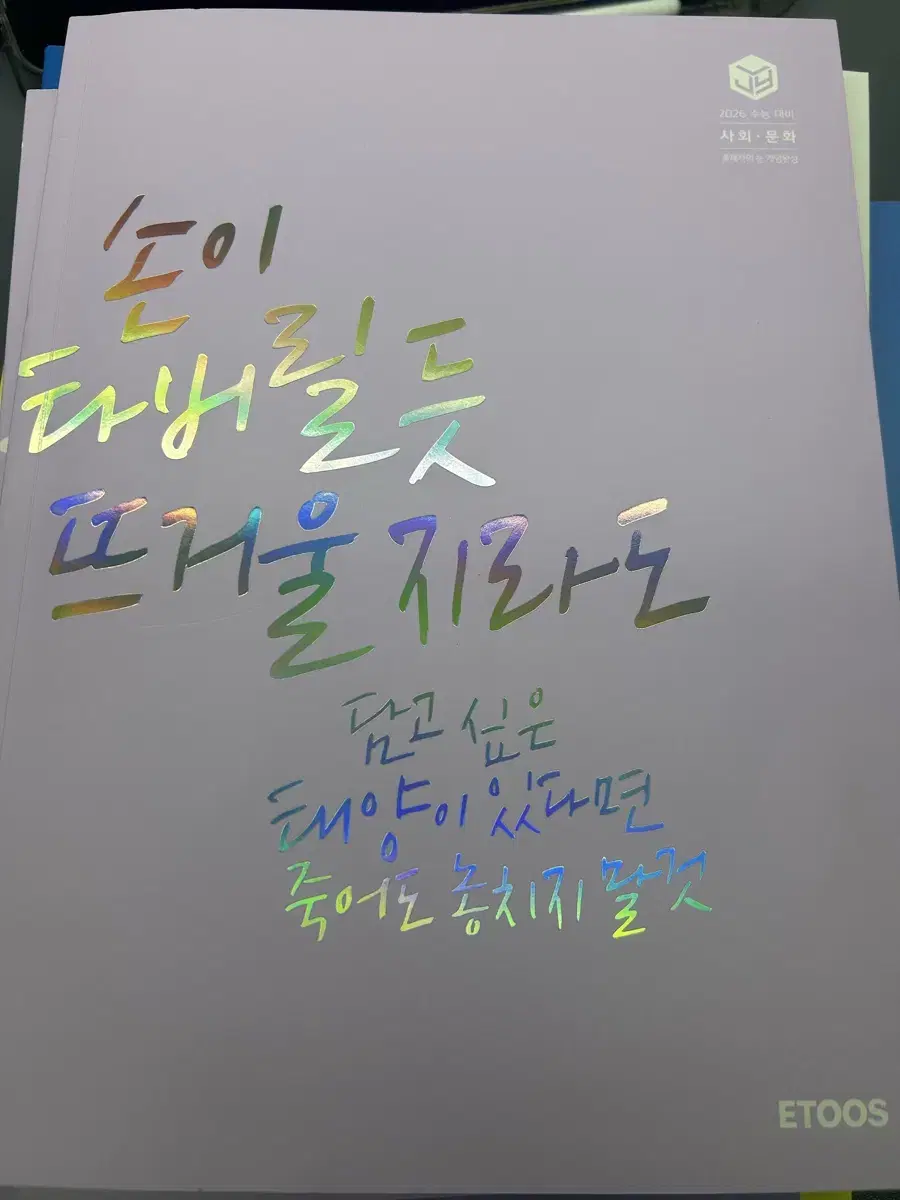 2026 수능 대비
사회·문화
손이
타버릴 듯
뜨거울지라도
담고 싶은
태양이 있다면
죽어도 놓치지 말 것
ETOOS